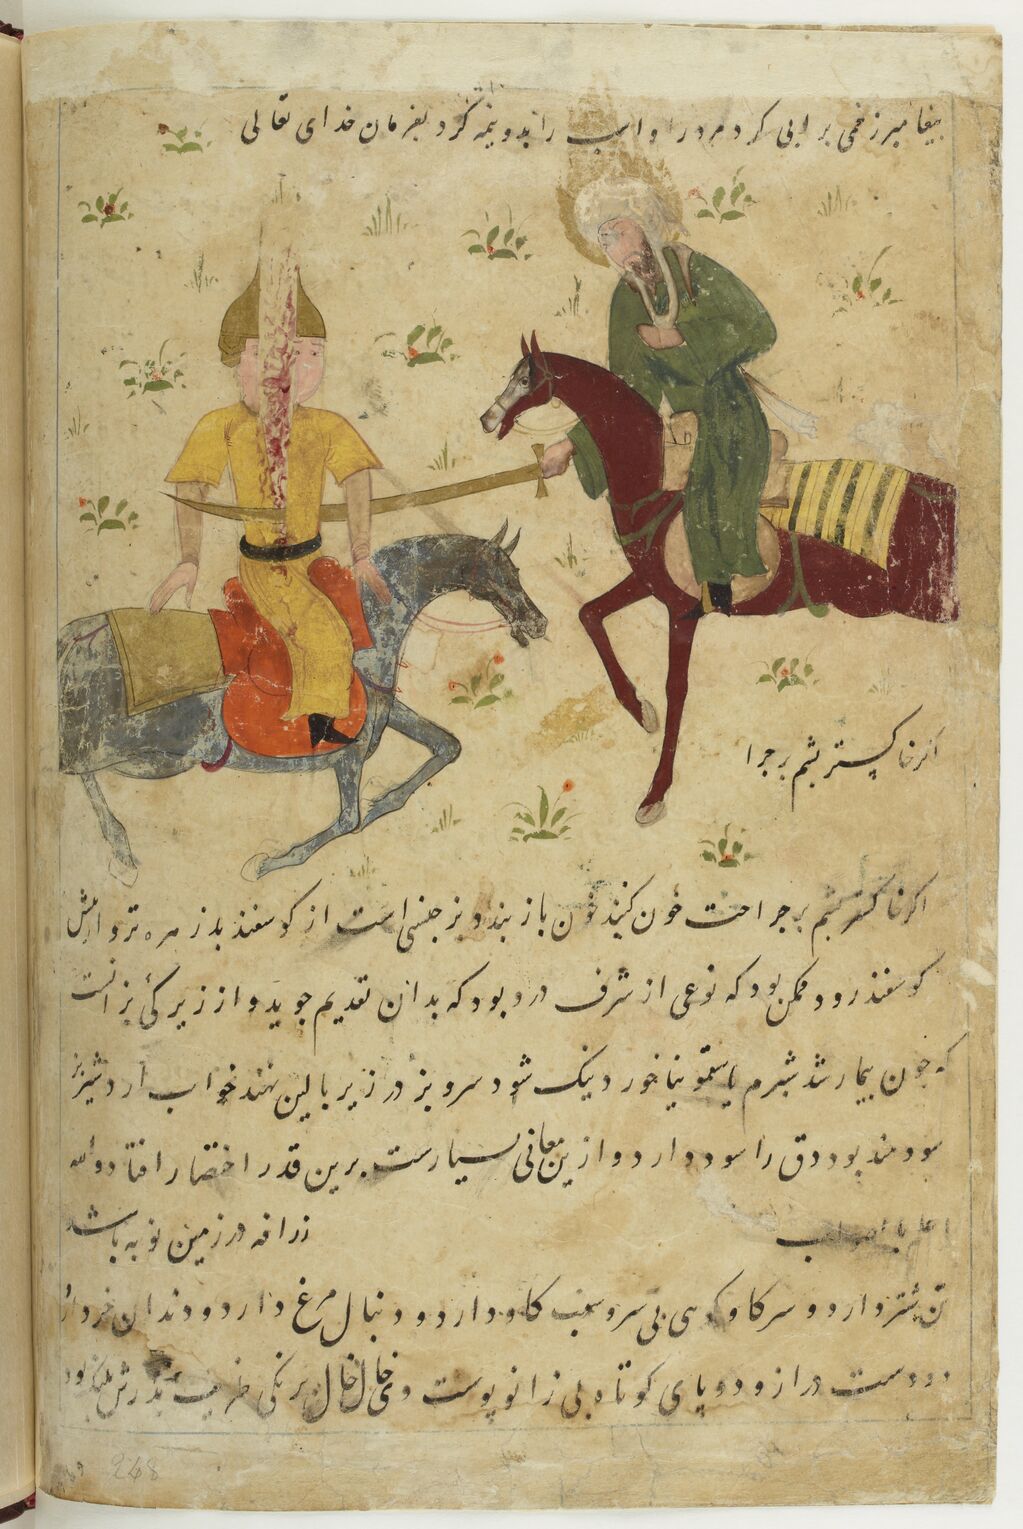 پیغامبر زخمی بر ابی کرد مرد را و اسب را بدو نیمه کرد بفرمان خدای تعالی
اکر خاکستر پشم بر جرا
اکر خاکستر پشم بر جراحت خون کنند خون باز بندد و بز جنسی است از کوسفند بد زهره تر و ارمش
کوسفند رود ممکن بود که نوعی از شرف درو بود که بدان تقدیم جوید و از زیرکئ بز انست
که جون بیمار شد شبرم یا سقمونیا خورد نیک شود سرو بز در زیر بالین نهند خواب ارد شیر بز
سودمند بود دق را سود دارد و ازین معانی بسیارست برین قدر اختصار افتاد والله
اعلم بالصواب زرافه در زمین نوبه باشد
تن شتر دارد و سر کاو کوهی بی سرو سنب کاو دارد و دنبال مرغ دارد و دندان خرد دارد
دو دست دراز و دو پای کوتاه بی زانو پوست وی خال خال برنکی
248